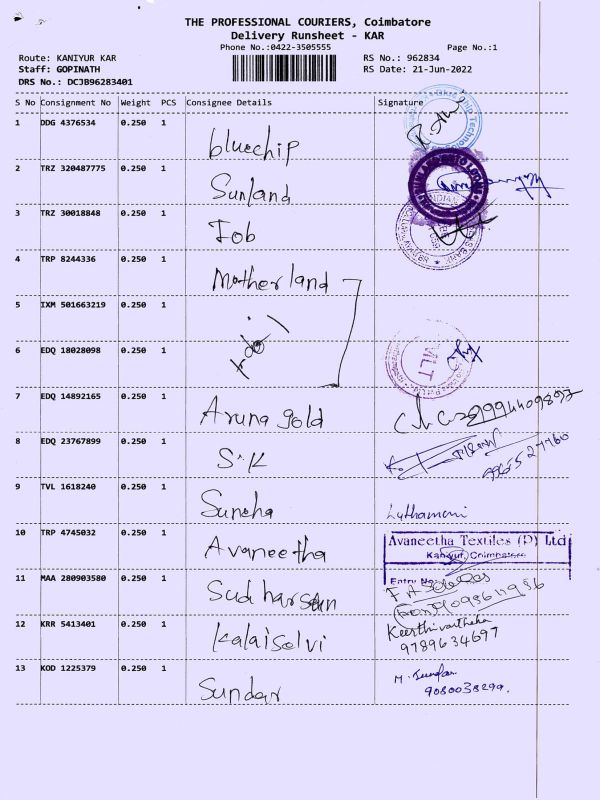 THE PROFESSIONAL COURIERS, Coimbatore
Delivery Runsheet - KAR
Phone No.:0422-3505555
Page No.:1
Route: KANIYUR KAR
RS No.: 962834
Staff: GOPINATH
RS Date: 21-Jun-2022
DRS No.: DCJB96283401
S No Consignment No Weight PCS Consignee Details Signature
1 DDG 4376534 0.250 1 bluechip
2 TRZ 320487775 0.250 1 Sunland
3 TRZ 30018848 0.250 1 Iob
4 TRP 8244336 0.250 1 Motherland
5 IXM 501663219 0.250 1
6 EDQ 18028098 0.250 1
7 EDQ 14892165 0.250 1 Aruna gold
8 EDQ 23767899 0.250 1 S.K
9 TVL 1618240 0.250 1 Suneha
10 TRP 4745032 0.250 1 Avaneetha
Avaneetha Textiles (P) Ltd
Kaniyur, Coimbatore
Entry No:
11 MAA 280903580 0.250 1 Sudharsan
12 KRR 5413401 0.250 1 Kalaiselvi
9789634697
13 KOD 1225379 0.250 1 Sundar
M. Sundar
9080038299.